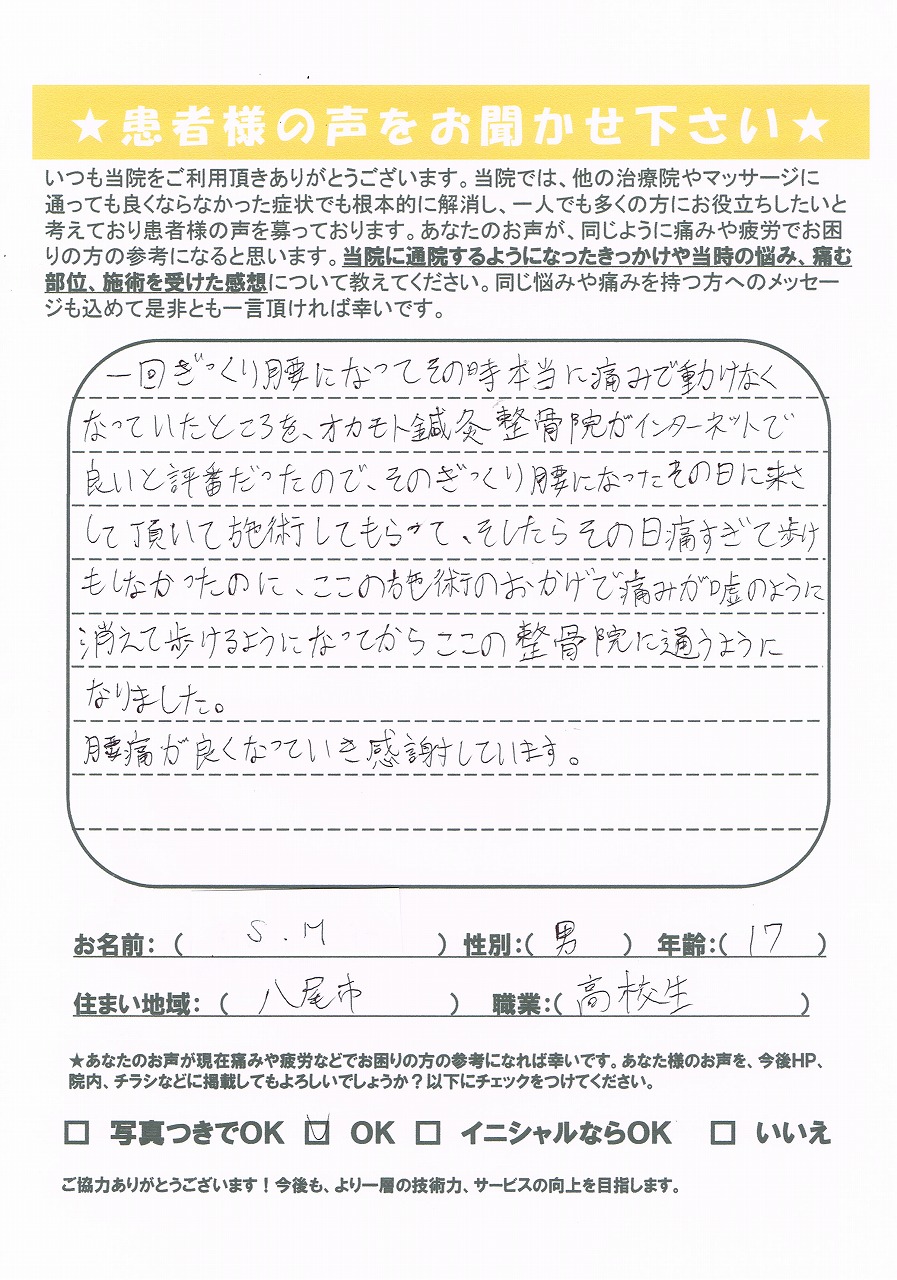 ★患者様の声をお聞かせ下さい★
いつも当院をご利用頂きありがとうございます。当院では、他の治療院やマッサージに
通っても良くならなかった症状でも根本的に解消し、一人でも多くの方にお役立ちしたいと
考えており患者様の声を募っております。あなたのお声が、同じように痛みや疲労でお困
りの方の参考になると思います。当院に通院するようになったきっかけや当時の悩み、痛む
部位、施術を受けた感想について教えてください。同じ悩みや痛みを持つ方へのメッセー
ジも込めて是非とも一言頂ければ幸いです。
一回ぎっくり腰になってその時本当に痛みで動けなく
なっていたところを、オカモト鍼灸整骨院がインターネットで
良いと評番だったので、そのぎっくり腰になったその日に来さ
して頂いて施術してもらって、そしたらその日痛すぎて歩け
もしなかったのに、ここの施術のおかげで痛みが嘘のように
消えて歩けるようになってからここの整骨院に通うように
なりました。
腰痛が良くなっていき感謝しています。
お名前：（ S.M ） 性別：（ 男 ） 年齢：（ 17 ）
住まい地域：（ 八尾市 ） 職業：（ 高校生 ）
★あなたのお声が現在痛みや疲労などでお困りの方の参考になれば幸いです。あなた様のお声を、今後HP、
院内、チラシなどに掲載してもよろしいでしょうか？以下にチェックをつけてください。
□ 写真つきでOK ☑ OK □ イニシャルならOK □ いいえ
ご協力ありがとうございます！今後も、より一層の技術力、サービスの向上を目指します。